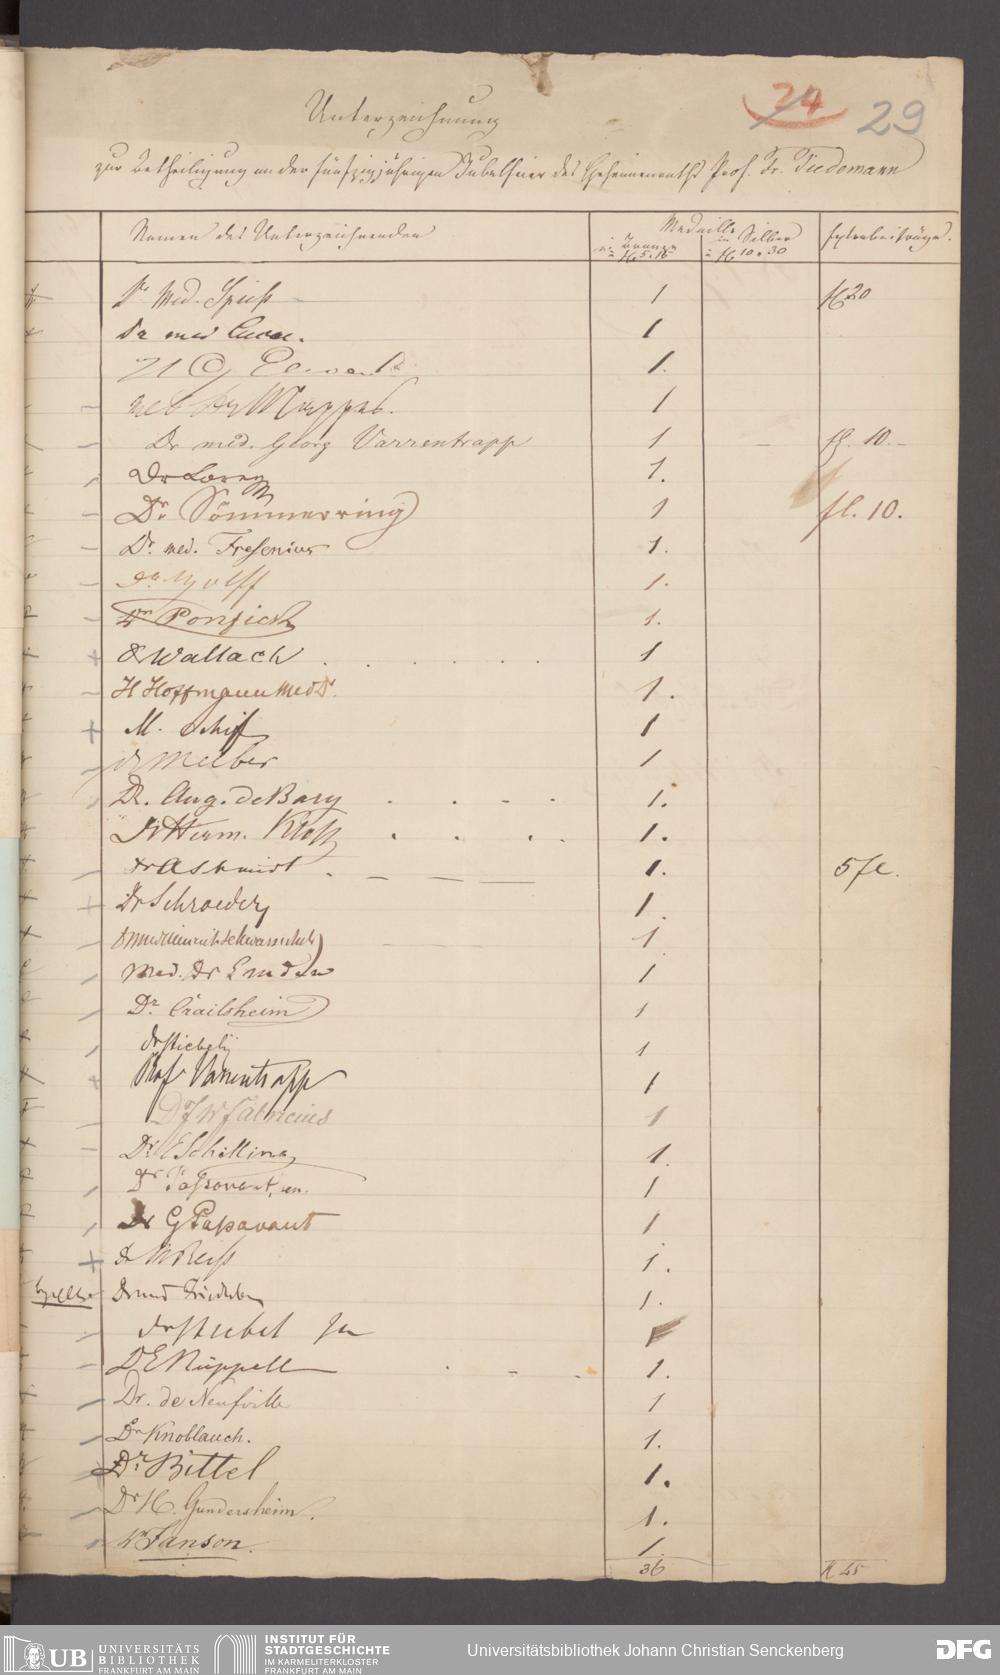 24 29
Unterzeichnung
zur Betheiligung an der fünfzigjährigen Jubelfeier des Geheimenraths Prof. Fr. Tiedemann
Namen des Unterzeichnenden Medaille in Bronze = fl 5.15 in Silber = fl 10.30 Extrabeiträge.
Dr Med. Spiess 1 fl 20
Dr med Lucae. 1
1.
Med Dr Mappes. 1
Dr med. Georg Varrentrapp 1 fl. 10.-
Dr Lorey 1.
Dr. Sömmerring 1 fl. 10.
Dr. med. Fresenius 1.
Dr Wolff 1.
Dr Ponfick 1.
Dr Wallach 1
H Hoffmann Med Dr. 1.
M. Schiff 1
Dr Melber 1
Dr. Aug. de Bary 1.
Dr Herm. Kloß 1.
Dr A Schmidt 1. 5 fl.
Dr Schroeder 1.
Dr med Heinrich Schwarzschild 1
Med. Dr Emden 1
Dr. Crailsheim 1
Dr Stiebel 1
Prof Varrentrapp 1
Dr F W Fabricius 1
Dr. E Schilling 1.
Dr Passavant, sen. 1
Dr G Passavant 1
Dr W Reiss 1.
Dr med Friedleben 1.
Dr Stiebel Jun
Dr E Rüppell 1.
Dr. de Neufville 1
Dr Knoblauch. 1.
Dr. Bittel 1.
Dr H. Gundersheim. 1.
Dr Janson. 1.
36 fl 45
UB UNIVERSITÄTS BIBLIOTHEK FRANKFURT AM MAIN
INSTITUT FÜR STADTGESCHICHTE IM KARMELITERKLOSTER FRANKFURT AM MAIN
Universitätsbibliothek Johann Christian Senckenberg
DFG